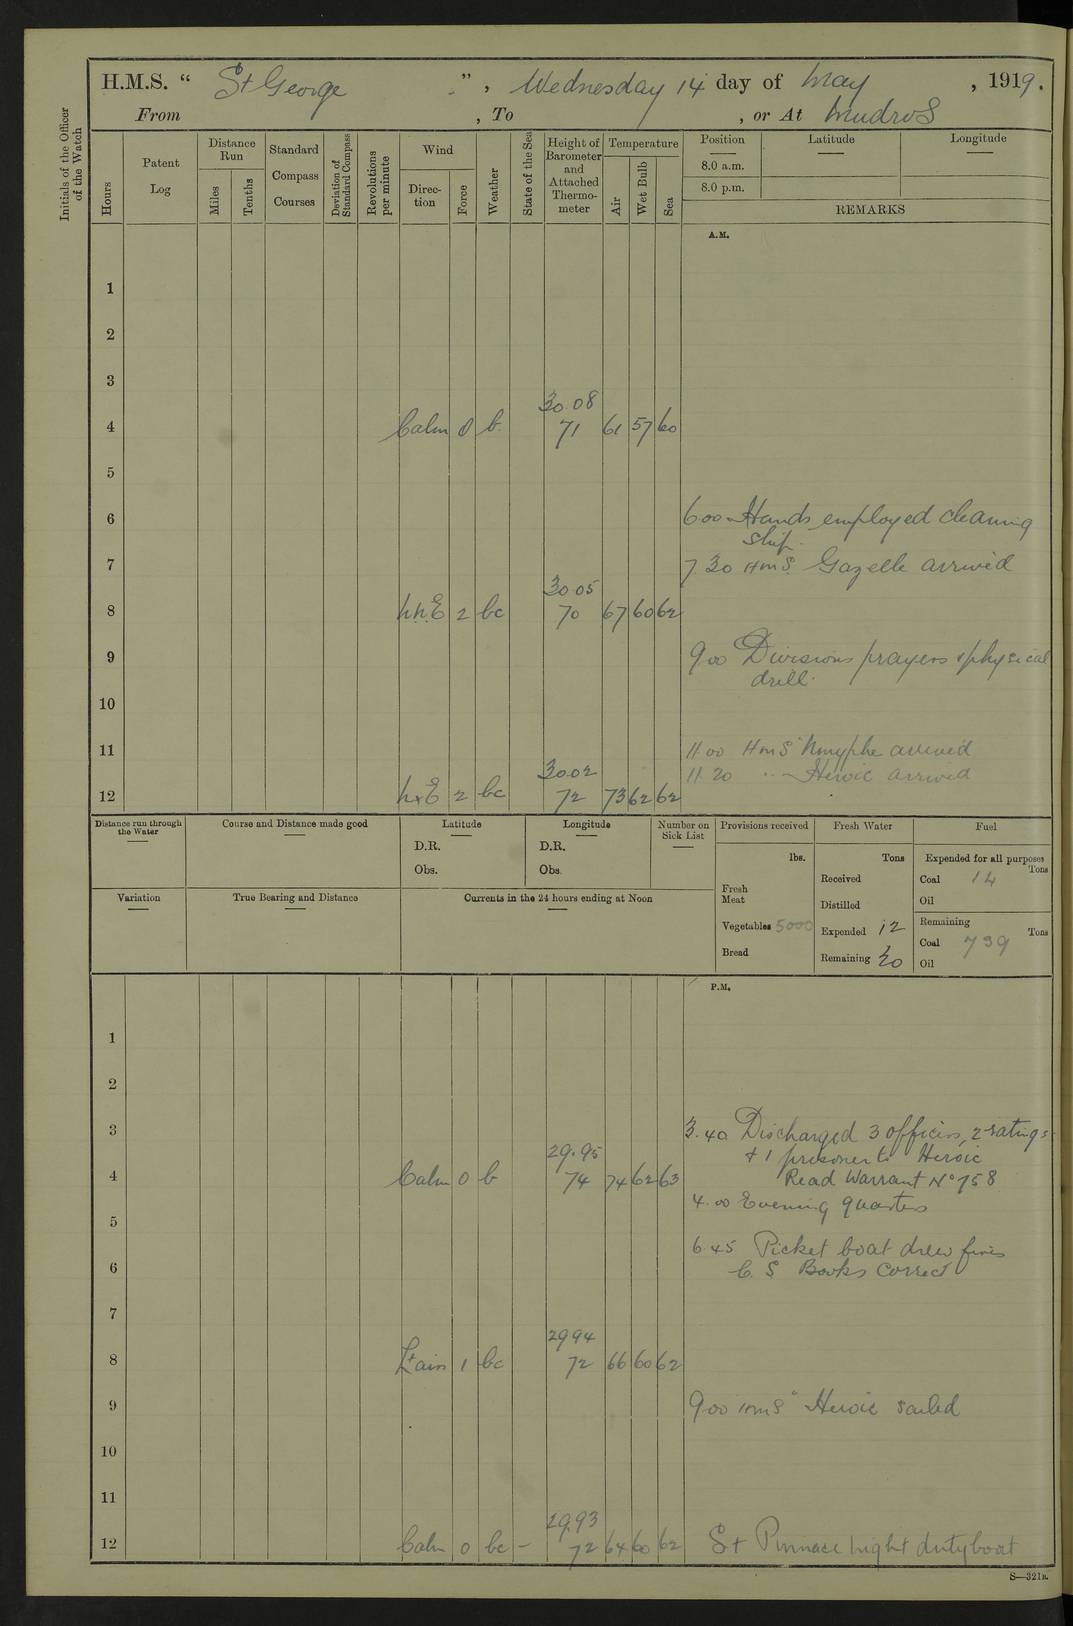 H.M.S. " St George ", Wednesday 14 day of May, 1919.
From , To , or At Mudros
Initials of the Officer
of the Watch
Hours
Patent
Log
Distance
Run
Miles
Tenths
Standard
Compass
Courses
Deviation of
Standard Compass
Revolutions
per minute
Wind
Direc-
tion
Force
Weather
State of the Sea
Height of
Barometer
and
Attached
Thermo-
meter
Temperature
Air
Wet Bulb
Sea
Position
8.0 a.m.
8.0 p.m.
Latitude
Longitude
REMARKS
A.M.
1
2
3
30.08
4 Calm 0 b. 71 61 57 60
5
6 6.00 Hands employed cleaning
ship.
7 7.30 HMS. Gazelle arrived
30.05
8 N.N.E 2 bc 70 67 60 62
9 9.00 Divisions prayers & physical
drill.
10
11 11.00 HMS "Nmyphe arrived
30.02 11.20 " - Heroic arrived
12 NxE 2 bc 72 73 62 62
Distance run through
the Water
Course and Distance made good
Latitude
D.R.
Obs.
Longitude
D.R.
Obs.
Number on
Sick List
Provisions received
lbs.
Fresh
Meat
Vegetables 5000
Bread
Fresh Water
Tons
Received
Distilled
Expended 12
Remaining 30
Fuel
Expended for all purposes
Tons
Coal 14
Oil
Remaining
Tons
Coal 739
Oil
Variation
True Bearing and Distance
Currents in the 24 hours ending at Noon
P.M.
1
2
3 3.40 Discharged 3 officers, 2 ratings
29.95 & 1 prisoner to Heroic
4 Calm 0 b 74 74 62 63 Read Warrant No 758
4.00 Evening quarters
5
6.45 Picket boat drew fires
6 C. S Books correct
7
29.94
8 Lt airs 1 bc 72 66 60 62
9 9.00 HMS " Heroic sailed
10
11
29.93
12 Calm 0 bc - 72 64 60 62 St Pinnace night duty boat
S—321B.